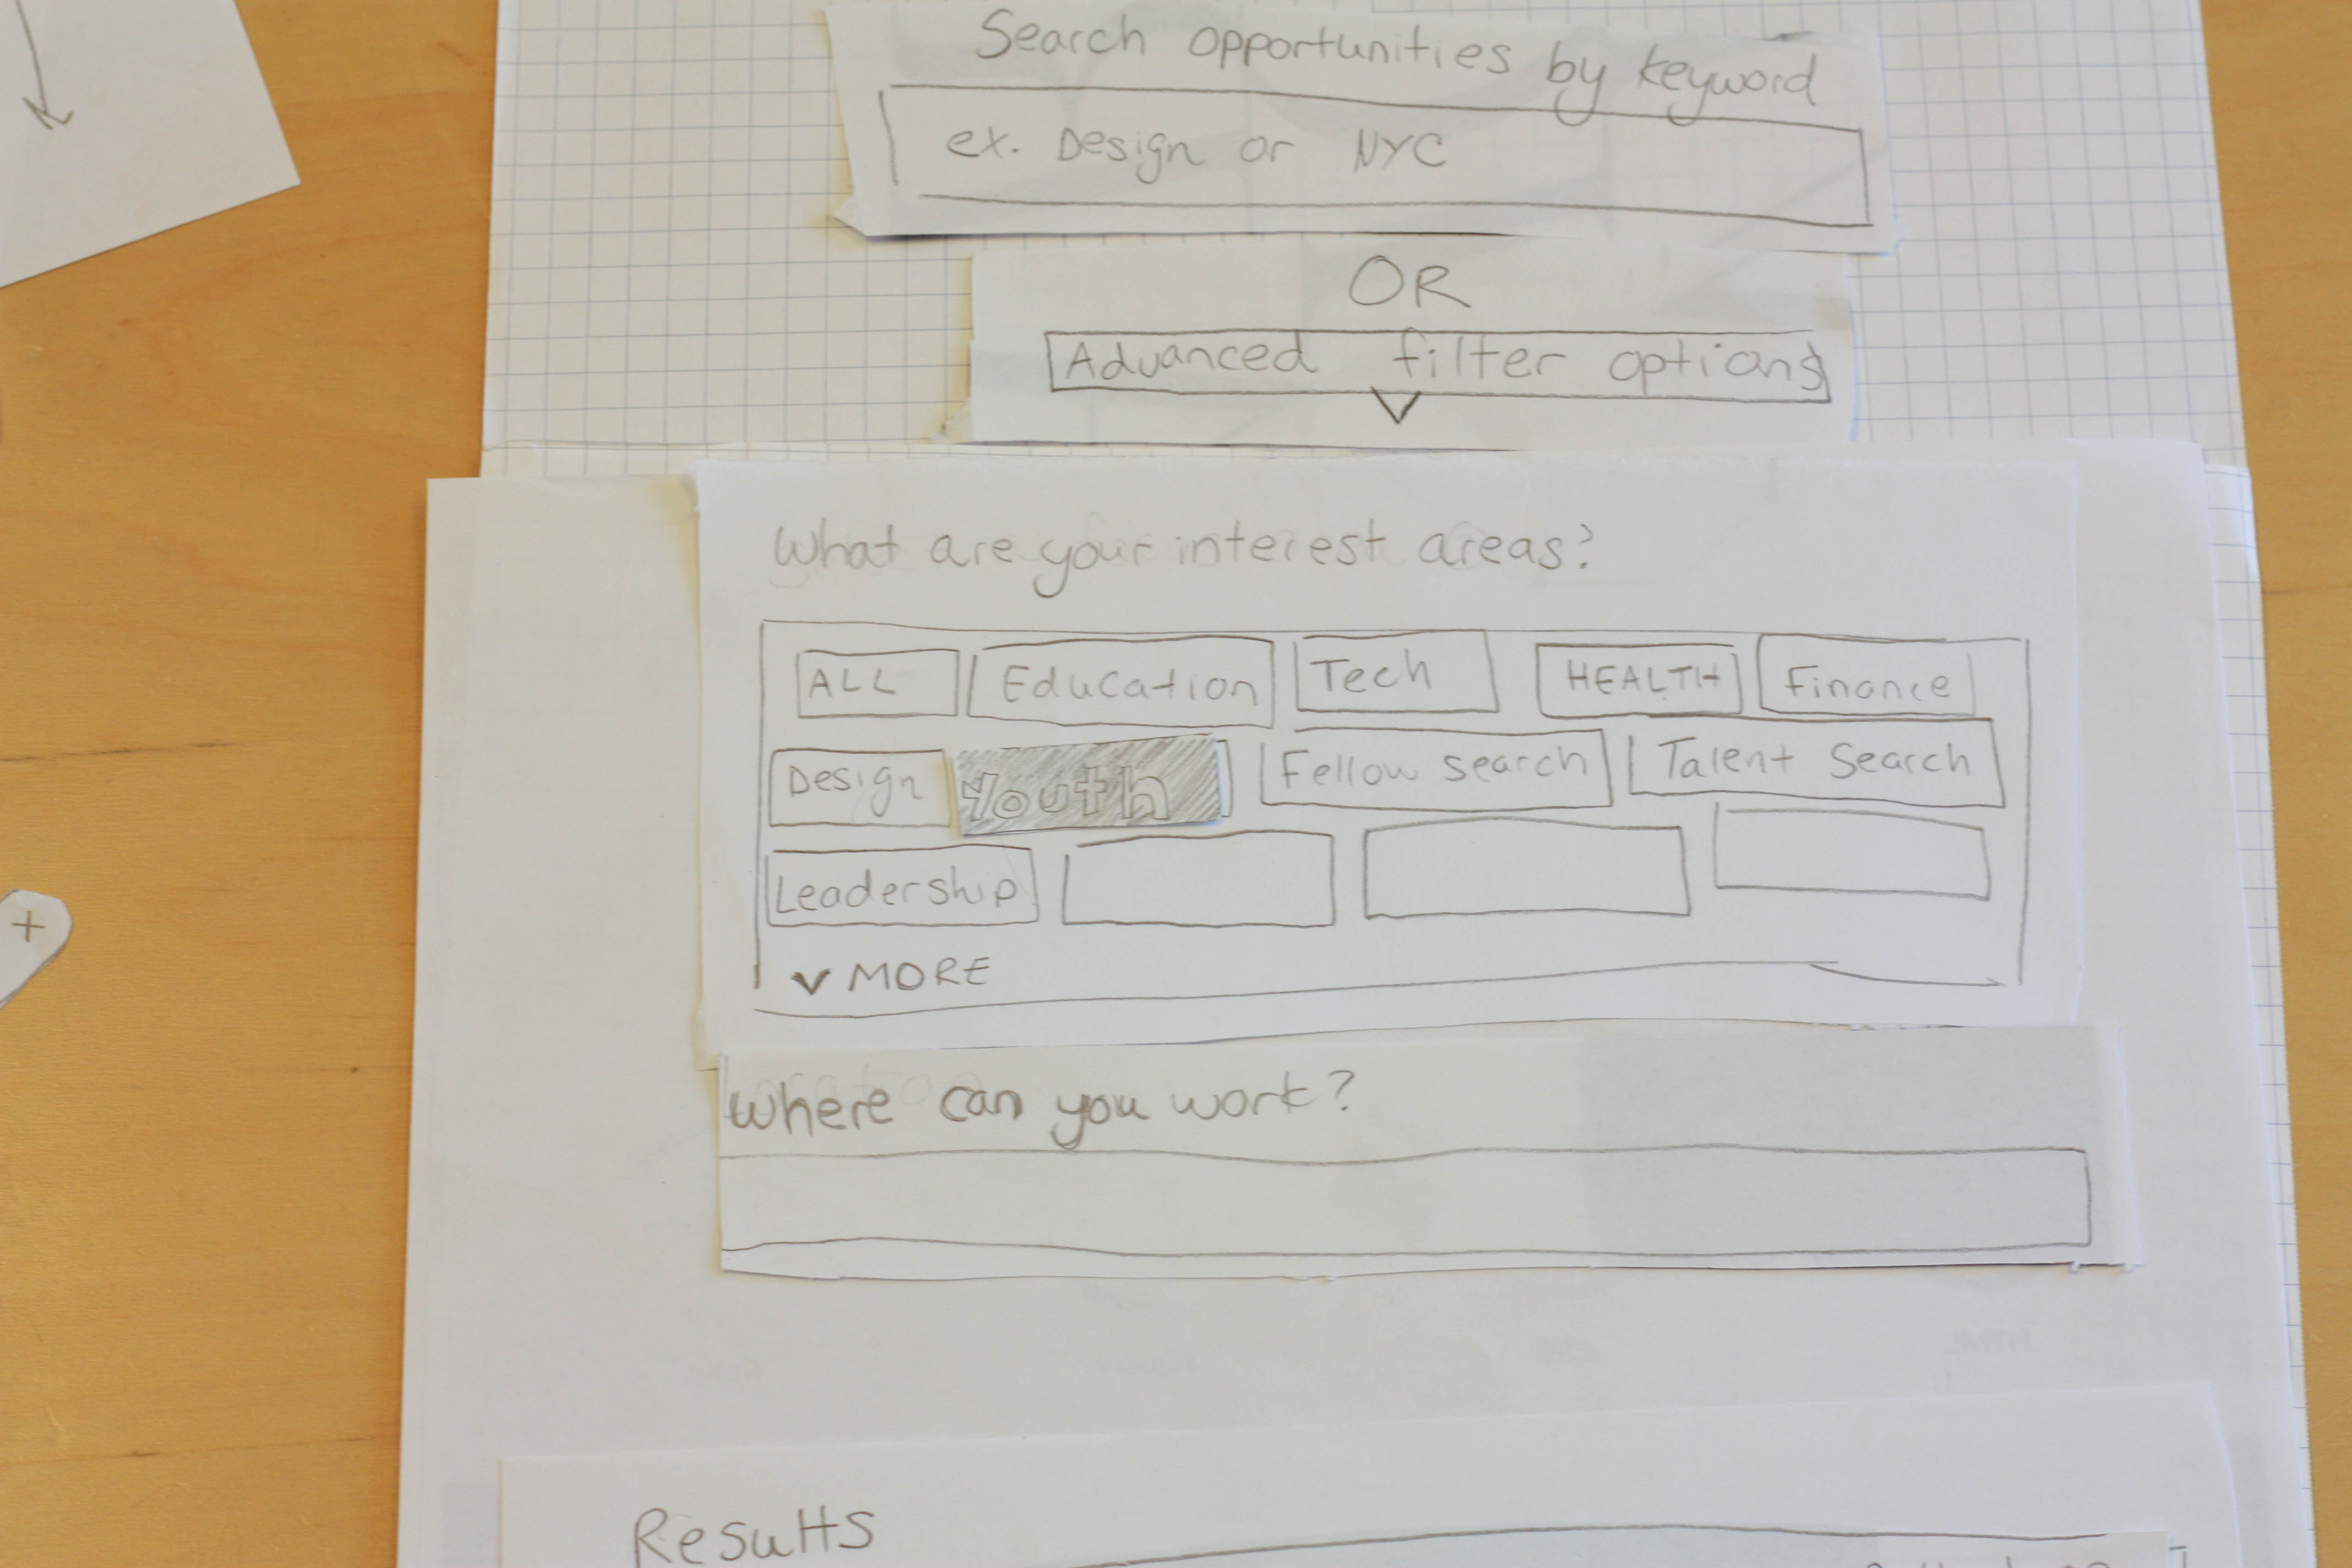 Search opportunities by keyword
ex. Design or NYC
OR
Advanced filter options
What are your interest areas?
ALL Education Tech HEALTH Finance
Design Youth Fellow search Talent Search
Leadership
v MORE
+
Where can you work?
Results